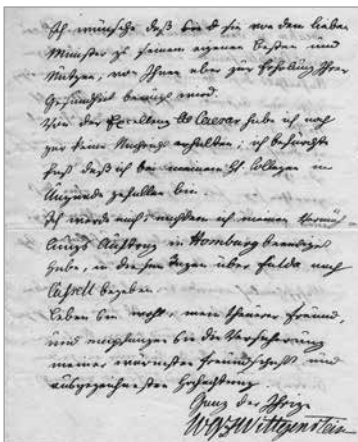 Ich wünsche daß sie von dem lieben
Minister zu seinem eigenen Besten und
Nutzen, von Ihnen aber zur Erholung Ihrer
Gesundheit benutzt wird.
Von der Excellenz Caesar habe ich noch
gar keine Nachricht erhalten; ich befürchte
daß ich bei meinem H. Collegen in
Ungnade gefallen bin.
Ich werde mich, nachdem ich meinen Vermäh
lungs Auftrag in Homburg beendiget
habe, in diesen Tagen über Fulda nach
Cassell begeben.
Leben Sie wohl, mein theurer Freund,
und empfangen Sie die Versicherung
meiner wärmsten Freundschaft und
ausgezeichnetsten Hochachtung
Ganz der Ihrige
WGFWittgenstein